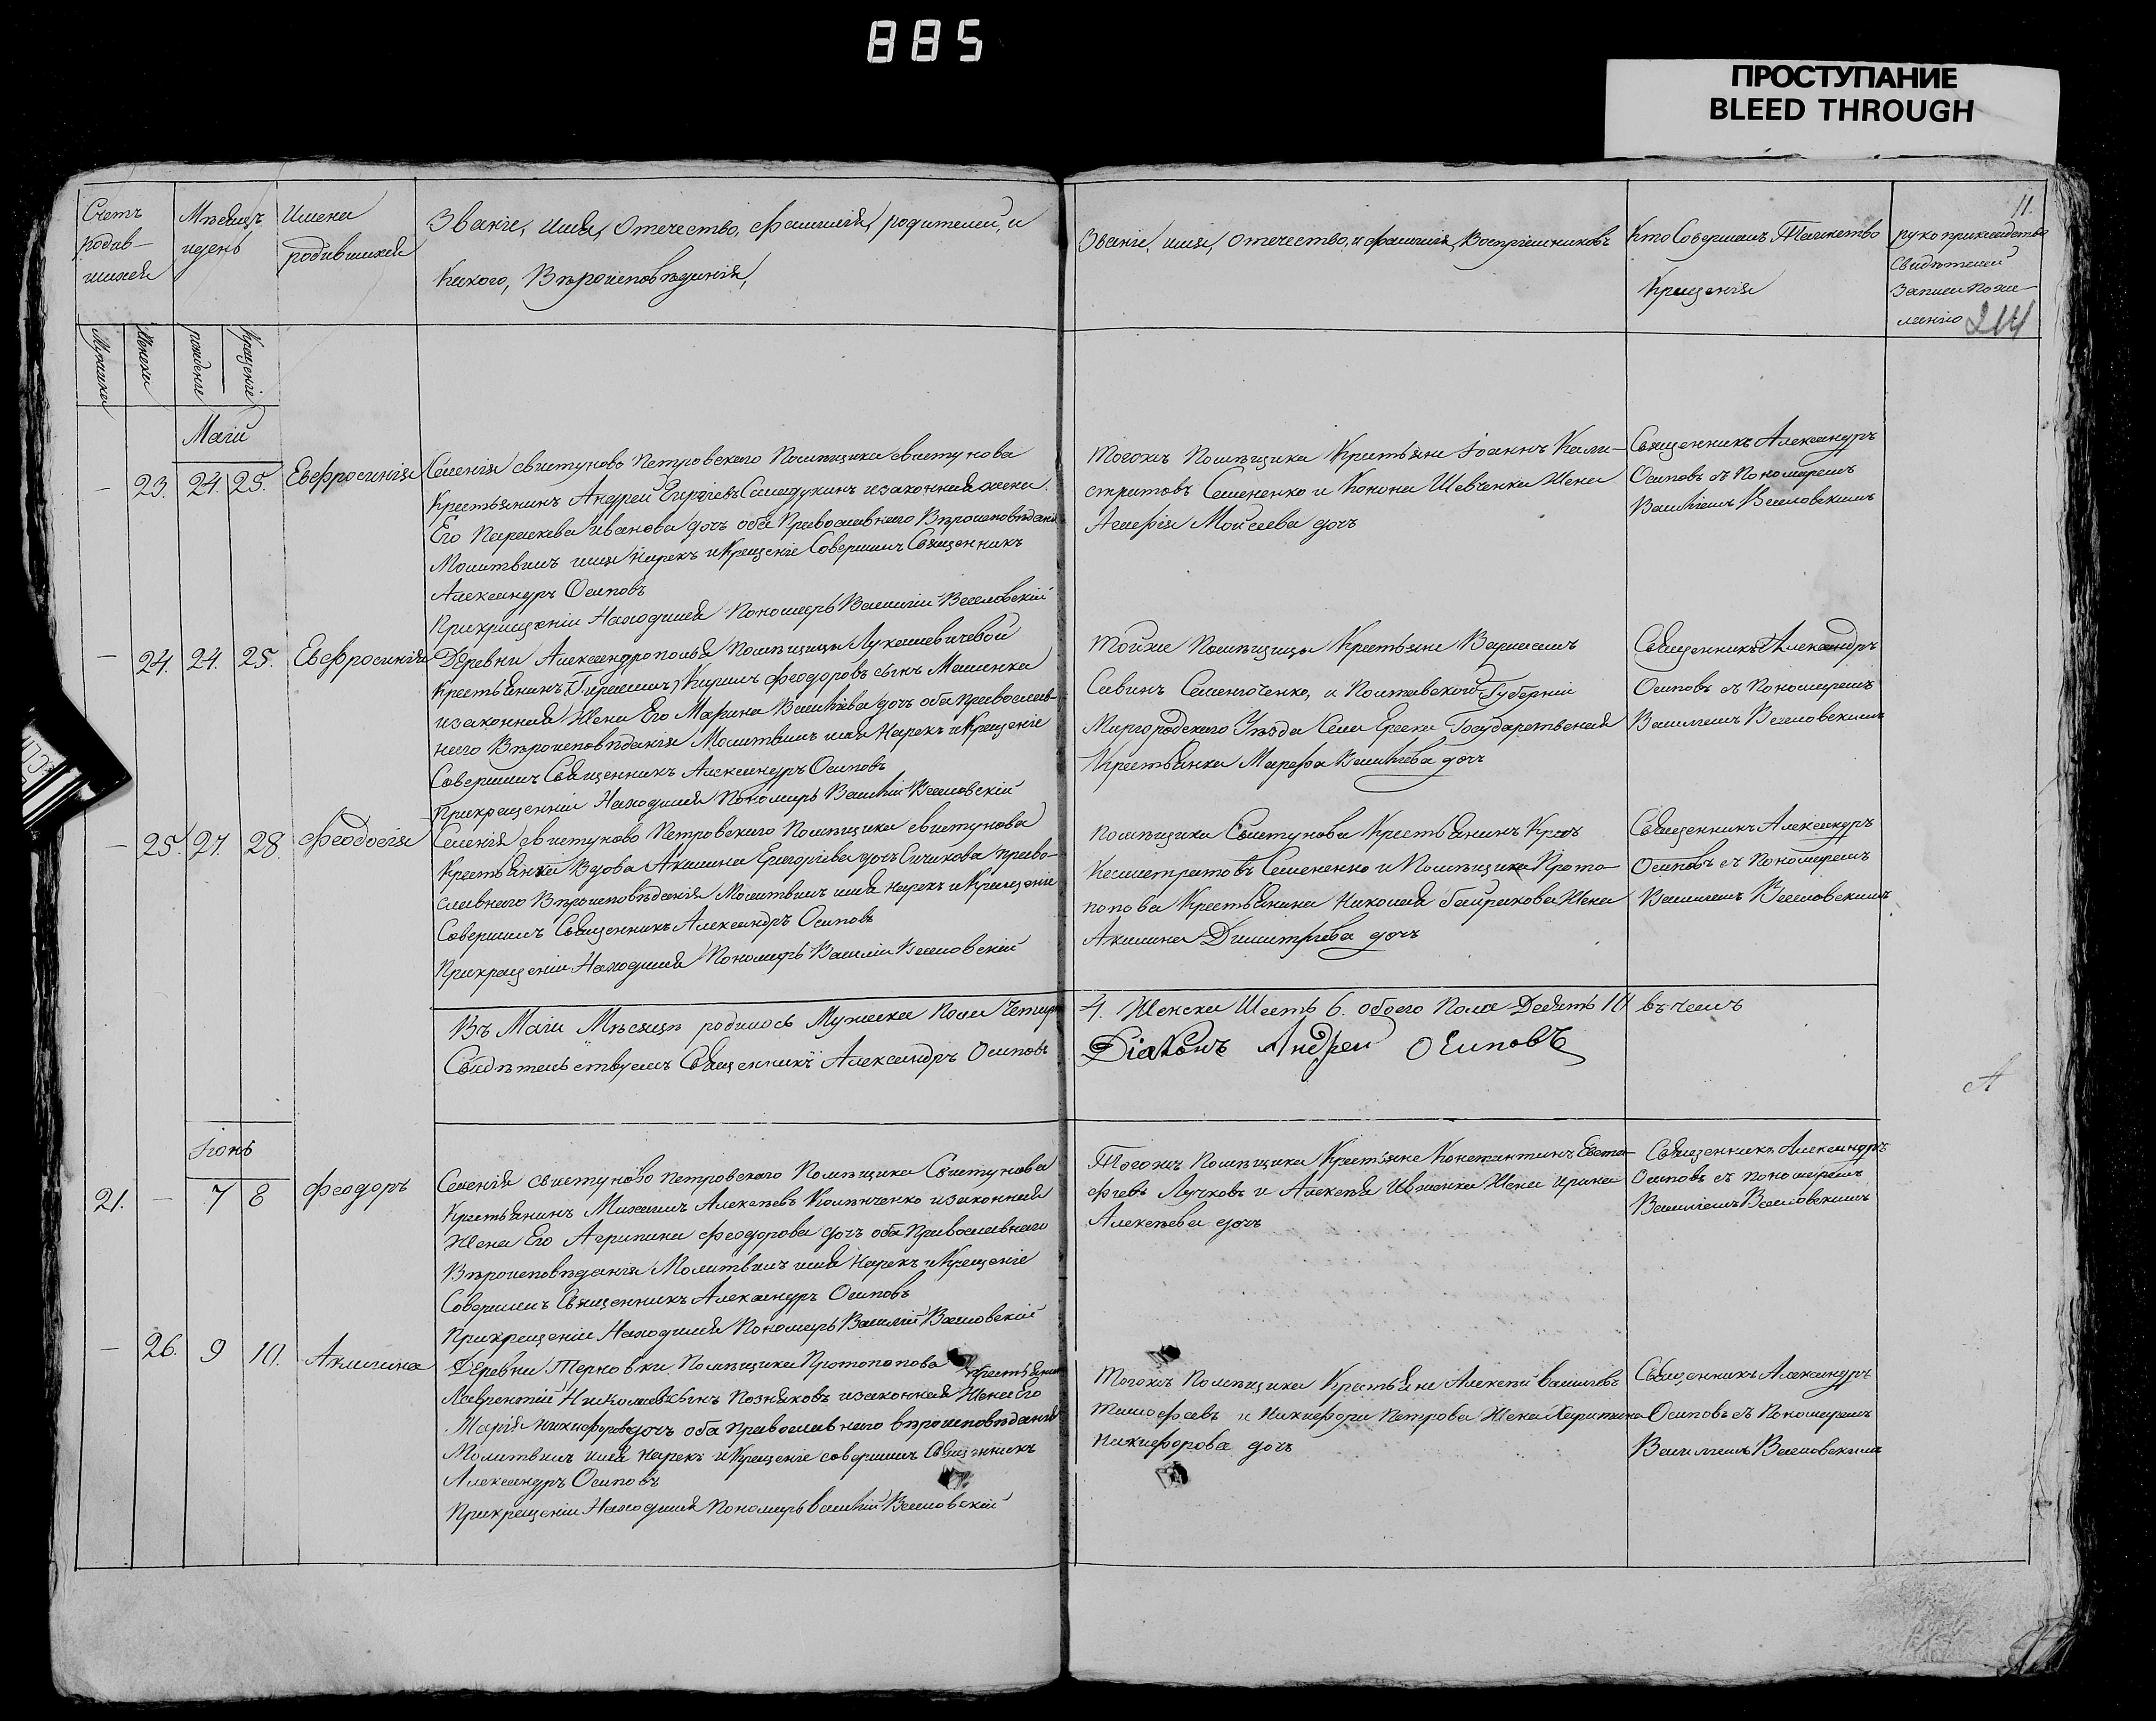 885
ПРОСТУПАНИЕ
BLEED THROUGH
11.
Счетъ родив-шихся
Мѣсяцъ и день
Имена родившихся
Званіе, имя, отечество, фамилія, родителей, и
Какого, Вѣроисповѣданія,
Званіе, имя, отечество, и фамилія, Воспріемниковъ
Кто Совершалъ Таинство
Крещенія
рукоприкладство
Свидѣтелей
Записи по же-
ланію
214
Мужеска
Женска
рожденіе
Крещеніе
Маій
— 23. 24. 25. Евфросинія
Селенія свистуново Петровского Помѣщика свистунова
Крестьянинъ Андрей Самадухинъ и законная жена
Его Параскева Иванова дочь оба Православнаго Вѣроисповѣданія
Молитвилъ имя Нарекъ и Крещеніе Совершилъ Священникъ
Александръ Осиповъ
При крещеніи Находился Пономарь Василій Веселовскій
Тогожъ Помѣщика Крестьяне Іоаннъ Кали-
стратовъ Семененко и Конона Шевченка Жена
Моисеева дочь
Священникъ Александръ
Осиповъ съ Пономаремъ
Василіемъ Веселовскимъ
— 24. 24. 25. Евфросинія
Деревни Александрополья Помѣщицы Лукашевичевой
Крестьянинъ Кирилъ Феодоровъ сынъ Машенка
и законная Жена Его Марина Васильева дочь оба Православ-
наго Вѣроисповѣданія Молитвилъ имя Нарекъ и Крещеніе
Совершилъ Священникъ Александръ Осиповъ
При крещеніи Находился Пономарь Василій Веселовскій
Тойже Помѣщицы Крестьяне Варлаамъ
Савинъ Семенюченко, и Полтавской Губерніи
Миргородского Уѣзда Села Ереси Государственная
Крестьянка Марфа Васильева дочь
Священникъ Александръ
Осиповъ съ Пономаремъ
Василіемъ Веселовскимъ
— 25. 27. 28. Феодосія
Селенія свистуново Петровского Помѣщика свистунова
Крестьянка Вдова Акилина Григоріева дочь Сичикова право-
славнаго Вѣроисповѣданія Молитвилъ имя нарекъ и Крещеніе
Совершилъ Священникъ Александръ Осиповъ
При крещеніи Находился Пономарь Василій Веселовскій
Помѣщика Свистунова Крестьянинъ
Калистратовъ Семененко и Помѣщика Прото-
попова Крестьянина Николая Байракова Жена
Акилина Димитріева дочь
Священникъ Александръ
Осиповъ съ Пономаремъ
Василіемъ Веселовскимъ
Въ Маіи Мѣсяцѣ родилось Мужеска Пола Четыри 4. Женска Шесть 6. обоего Пола Десять 10 въ чемъ
Свидѣтельствуемъ Священникъ Александръ Осиповъ
Діаконъ Андрей Осиповъ
Іюнь
21. — 7 8 Феодоръ
Селенія свистуново петровского Помѣщика Свистунова
Крестьянинъ Михаилъ Алексѣевъ и законная
Жена Его Агрипина Феодорова дочь оба Православнаго
Вѣроисповѣданія Молитвилъ имя Нарекъ и Крещеніе
Совершилъ Священникъ Александръ Осиповъ
При крещеніи Находился Пономарь Василій Веселовскій
Тогожъ Помѣщика Крестьяне Константинъ Евста-
фіевъ Лучковъ и Алексѣя Ивженка Жена Ирина
Алексѣева дочь
Священникъ Александръ
Осиповъ съ пономаремъ
Василіемъ Веселовскимъ
— 26. 9 10. Акилина
Деревни Терновки Помѣщика Протопопова Крестьянинъ
Лаврентій Николаевъ сынъ Позняковъ и законная Жена Его
Марія Никифорова дочь оба Православнаго вѣроисповѣданія
Молитвилъ имя нарекъ и Крещеніе совершилъ Священникъ
Александръ Осиповъ
При крещеніи Находился Пономарь василій Веселовскій
Тогожъ Помѣщика Крестьяне Алексѣй василіевъ
Тимофѣевъ и Никифора Петрова Жена Харитина
Никифорова дочь
Священникъ Александръ
Осиповъ съ Пономаремъ
Василіемъ Веселовскимъ